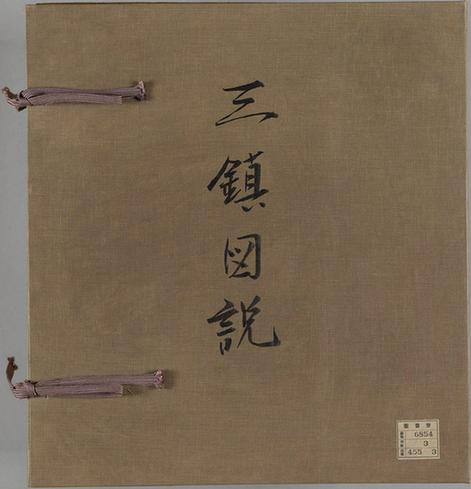 三鎮図説
6854
3
455 3